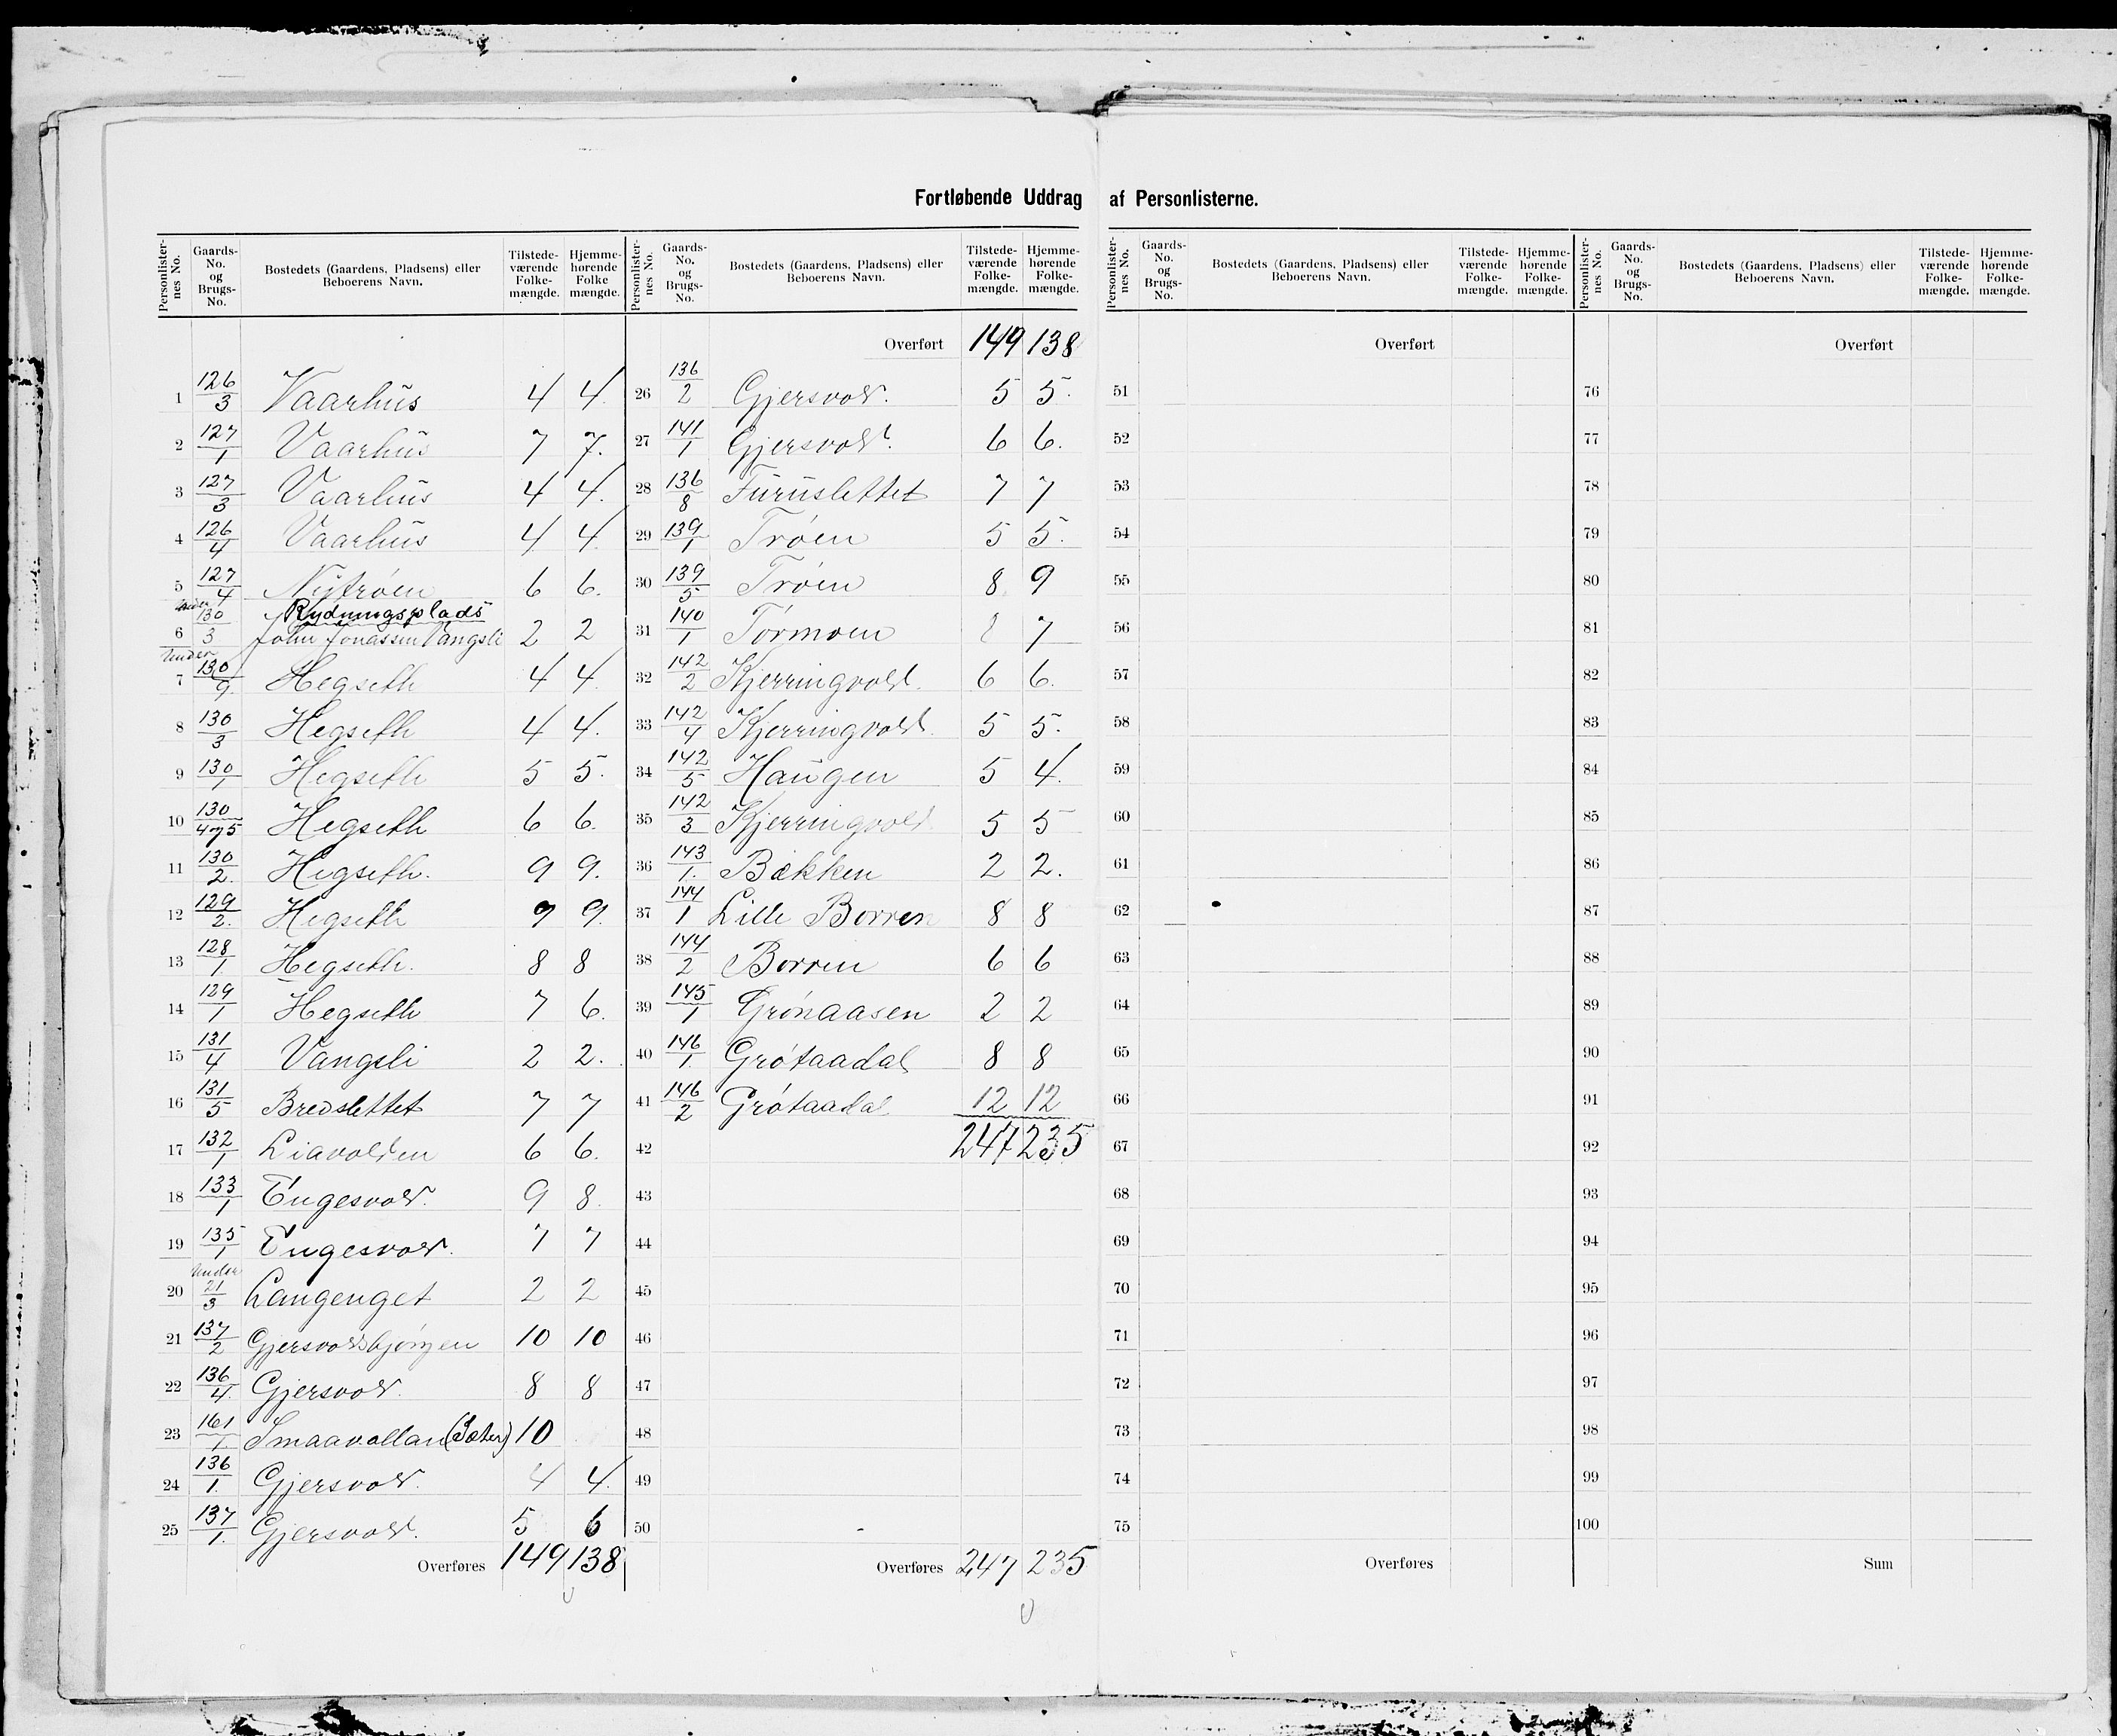 Fortløbende Uddrag af Personlisterne.
Personlister-nes No. Gaards-No. og Brugs-No. Bostedets (Gaardens, Pladsens) eller Beboerens Navn. Tilstede-værende Folke-mængde. Hjemme-hørende Folke mængde.
1 126/3 Vaarhus 4 4.
2 127/1 Vaarhus 7 7.
3 127/3 Vaarhus 4 4.
4 126/4 Vaarhus 4 4
5 127/4 Nytrøen 6 6.
Under Rydningsplads
6 130/3 John Jonassen Vangsli 2 2
Under
7 130/9 Hegseth 4 4.
8 130/3 Hegseth 4 4.
9 130/1 Hegseth 5 5.
10 130/475 Hegseth 6 6.
11 130/2. Hegseth. 9 9.
12 129/2. Hegseth 9 9.
13 128/1 Hegseth. 8 8
14 129/1 Hegseth 7 6.
15 131/4 Vangsli 2 2.
16 131/5 Bredslettet 7 7
17 132/1 Liavolden 6 6.
18 133/1 Engesvold. 9 8.
19 135/1 Engesvold. 7 7
Under
20 21/3 Langenget 2 2
21 137/2 Gjersvoldbjørgen 10 10
22 136/4. Gjersvold. 8 8
23 161/1. Smaavollan (Sæter) 10
24 136/1. Gjersvold. 4 4.
25 137/1. Gjersvold. 5 6
Overføres 149 138
Personlister-nes No. Gaards-No. og Brugs-No. Bostedets (Gaardens, Pladsens) eller Beboerens Navn. Tilstede-værende Folke-mængde. Hjemme-hørende Folke-mængde.
Overført 149 138
26 136/2 Gjersvold. 5 5.
27 141/1 Gjersvold. 6 6.
28 136/8 Furuslettet 7 7
29 139/1 Trøen 5 5.
30 139/5 Trøen 8 9
31 140/1 Tørmoen 8 7
32 142/2 Kjerringvold. 6 6.
33 142/4 Kjerringvold. 5 5.
34 142/5 Haugen 5 4.
35 142/3 Kjerringvold. 5 5
36 143/1. Bækken 2 2.
37 144/1 Lille Borren 8 8
38 144/2 Borren 6 6
39 145/1 Grønaasen 2 2
40 146/1. Grøtaadal 8 8
41 146/2 Grøtaadal 12 12
42 247 235
43
44
45
46
47
48
49
50
Overføres 247 235
Personlister-nes No. Gaards-No. og Brugs-No. Bostedets (Gaardens, Pladsens) eller Beboerens Navn. Tilstede-værende Folke-mængde. Hjemme-hørende Folke-mængde.
Overført
51
52
53
54
55
56
57
58
59
60
61
62
63
64
65
66
67
68
69
70
71
72
73
74
75
Overføres
Personlister-nes No. Gaards-No. og Brugs-No. Bostedets (Gaardens, Pladsens) eller Beboerens Navn. Tilstede-værende Folke-mængde. Hjemme-hørende Folke-mængde.
Overført
76
77
78
79
80
81
82
83
84
85
86
87
88
89
90
91
92
93
94
95
96
97
98
99
100
Sum